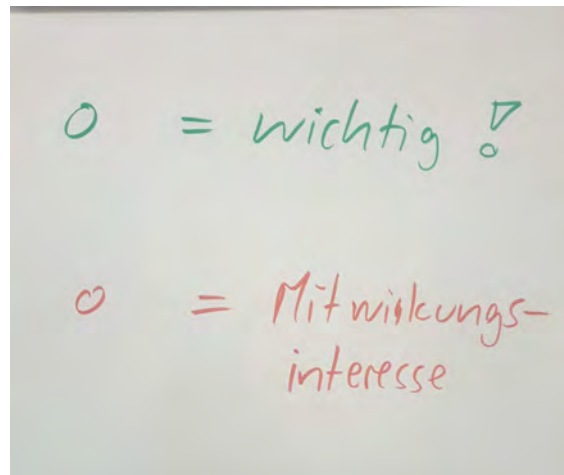 O = wichtig !
O = Mitwirkungs-
interesse